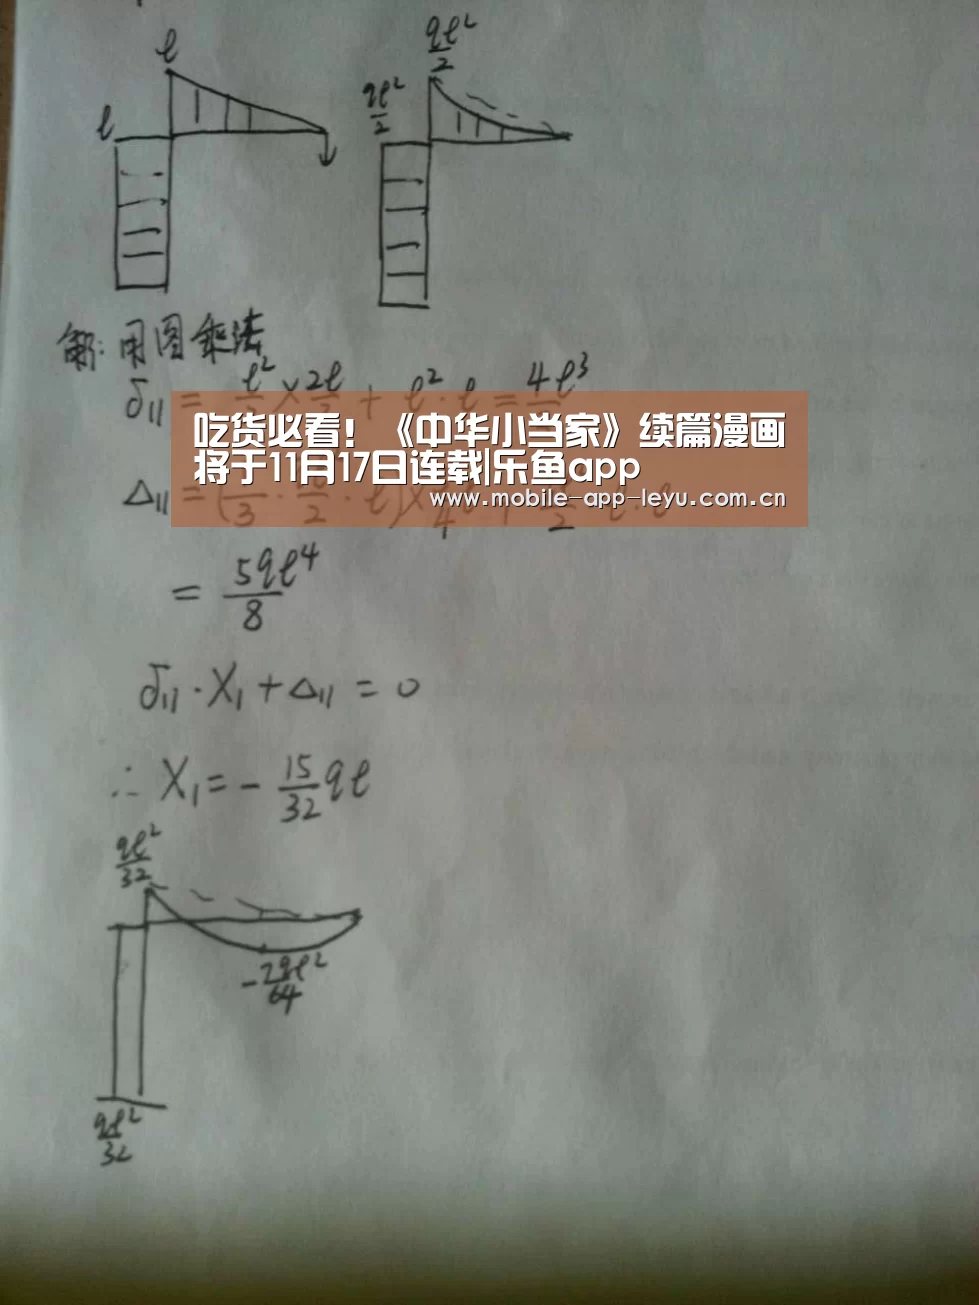 l
l
ql²/2
ql²/2
解：用图乘法
δ₁₁ = l² × 2l + l²·l = 4l³
吃货必看！《中华小当家》续篇漫画
将于11月17日连载|乐鱼app
www.mobile-app-leyu.com.cn
Δ₁₁ =
= 5ql⁴/8
δ₁₁·X₁+Δ₁₁=0
∴ X₁=-15/32 ql
ql²/32
-7ql²/64
ql²/32